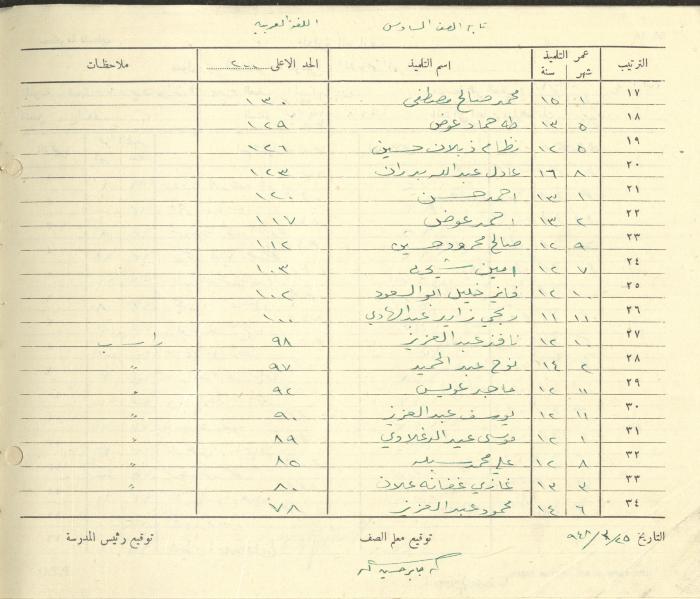 تابع الصف السادس اللغة العربية
الترتيب عمر التلميذ شهر سنة اسم التلميذ الحد الاعلى ٢٠٠ ملاحظات
١٧ ١ ١٥ محمد صالح مصطفى ١٣٠
١٨ ٥ ١٣ طه حماد عوض ١٢٩
١٩ ٥ ١٢ نظام ذيلان حسين ١٢٦
٢٠ ٨ ١٦ عادل عبدالله بدران ١٢٣
٢١ ١ ١٣ احمد حسن ١٢٠
٢٢ ٢ ١٣ احمد عوض ١١٧
٢٣ ٩ ١٢ صالح محمود حسين ١١٢
٢٤ ٧ ١٢ امين ١٠٣
٢٥ ١٠ ١٢ فايز خليل ابو السعود ١٠٢
٢٦ ١١ ١١ ربحي زايد عبدالهادي ١٠٠
٢٧ ١٠ ١٢ نافز عبد العزيز ٩٨ راسب
٢٨ ٢ ١٤ نوح عبد الحميد ٩٧ "
٢٩ ١١ ١٢ عويس ٩٢ "
٣٠ ١١ ١٢ يوسف عبد العزيز ٩٠ "
٣١ ١ ١٢ موسى عيد ٨٩ "
٣٢ ٨ ١٢ علي محمد ٨٥ "
٣٣ ٣ ١٣ غازي علان ٨٠ "
٣٤ ٦ ١٤ محمود عبد العزيز ٧٨
التاريخ ٢٥/٣/٩٤٨ توقيع معلم الصف توقيع رئيس المدرسة
جابر حسين